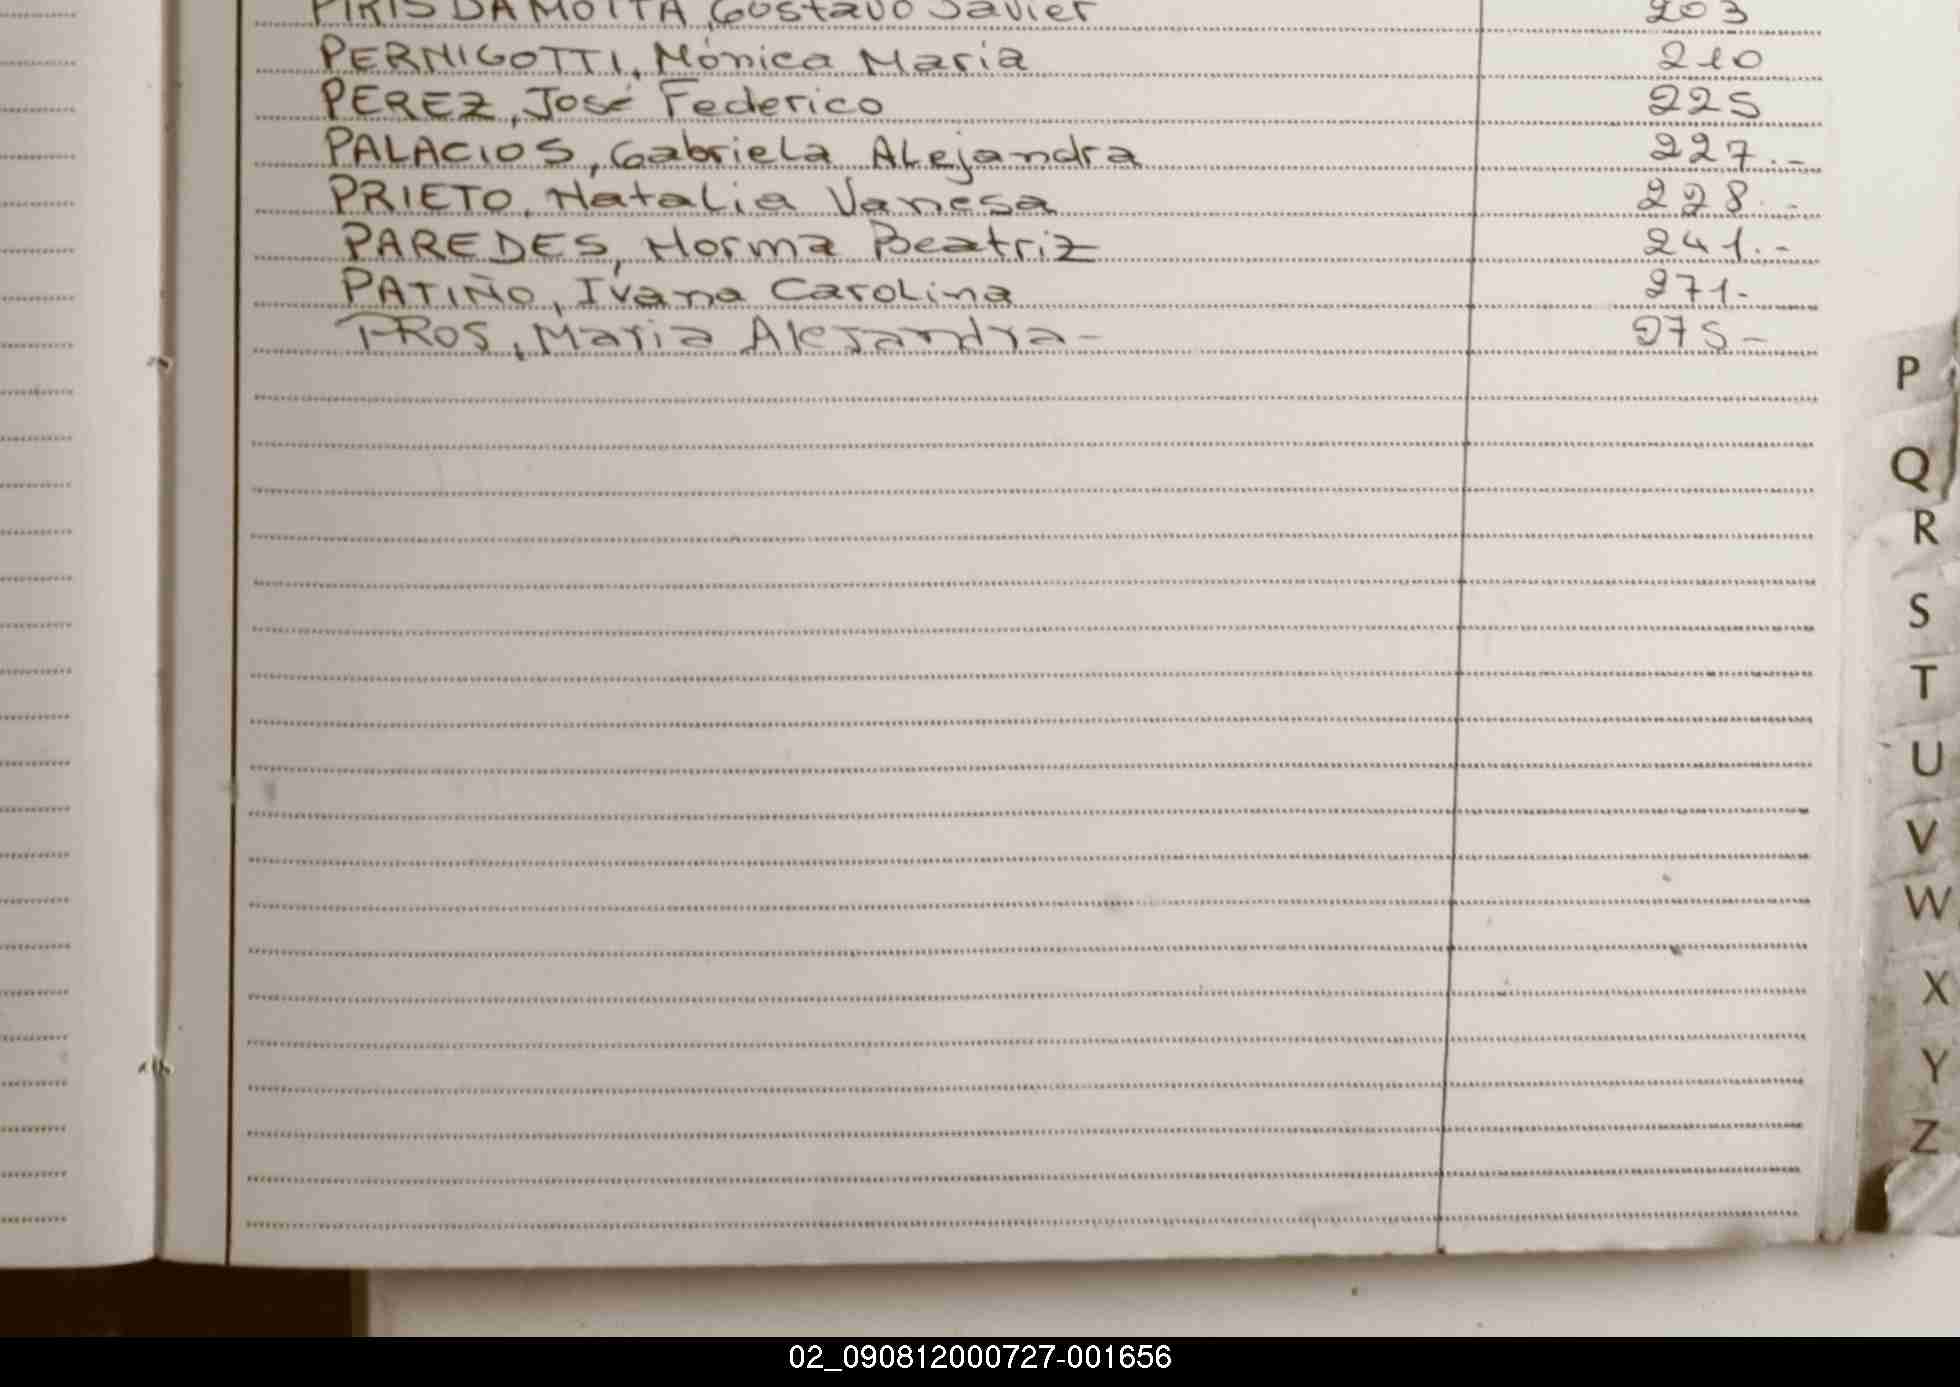 PIRIS DA MOTTA, Gustavo Javier 203
PERNIGOTTI, Mónica Maria 210
PEREZ, José Federico 225
PALACIOS, Gabriela Alejandra 227.-
PRIETO, Natalia Vanesa 228.-
PAREDES, Norma Beatriz 241.-
PATIÑO, Ivana Carolina 271-
PROS, Maria Alejandra- 275-
P
Q
R
S
T
U
V
W
X
Y
Z
02_090812000727-001656